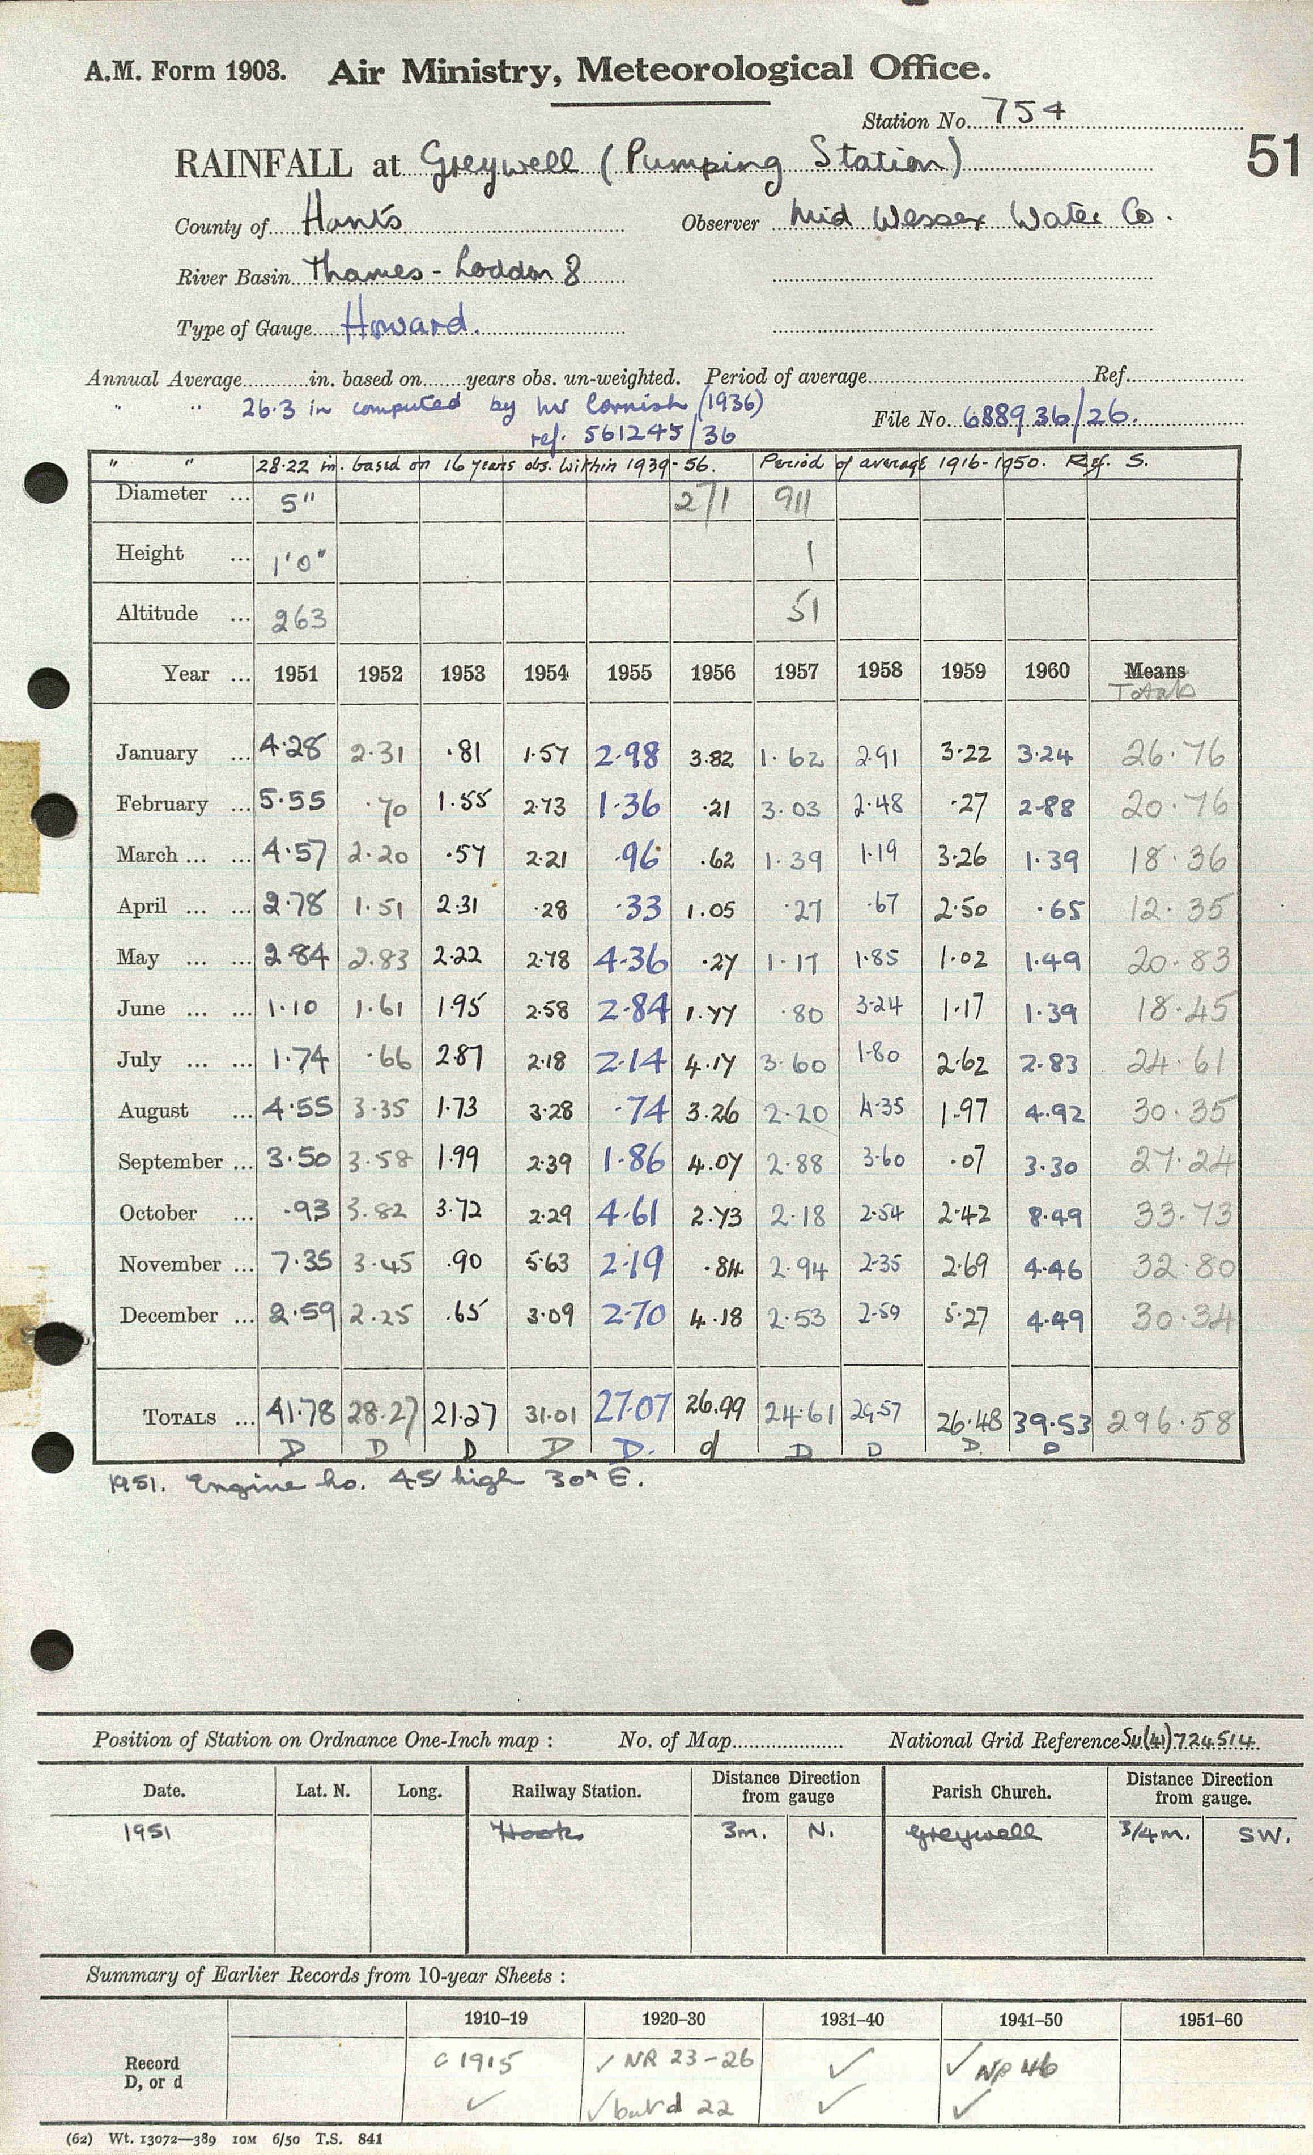 A.M. Form 1903. Air Ministry, Meteorological Office.
Station No. 754
51
RAINFALL at Greywell (Pumping Station)
County of Hants Observer Mid Wessex Water Co.
River Basin Thames - Loddon 8
Type of Gauge Howard.
Annual Average in. based on years obs. un-weighted. Period of average Ref.
" " 26.3 in computed by Mr Cornish (1936)
ref. 561245/36 File No. 688936/26.
" " 28.22 in. based on 16 years obs. within 1939-56. Period of average 1916-1950. Ref. S.
Diameter ... 5" 271 911
Height ... 1'0" 1
Altitude ... 263 51
Year ... 1951 1952 1953 1954 1955 1956 1957 1958 1959 1960 Means Totals
January ... 4.28 2.31 .81 1.57 2.98 3.82 1.62 2.91 3.22 3.24 26.76
February ... 5.55 .70 1.55 2.73 1.36 .21 3.03 2.48 .27 2.88 20.76
March ... ... 4.57 2.20 .57 2.21 .96 .62 1.39 1.19 3.26 1.39 18.36
April ... ... 2.78 1.51 2.31 .28 .33 1.05 .27 .67 2.50 .65 12.35
May ... ... 2.84 2.83 2.22 2.78 4.36 .27 1.17 1.85 1.02 1.49 20.83
June ... ... 1.10 1.61 1.95 2.58 2.84 1.77 .80 3.24 1.17 1.39 18.45
July ... ... 1.74 .66 2.87 2.18 2.14 4.17 3.60 1.80 2.62 2.83 24.61
August ... 4.55 3.35 1.73 3.28 .74 3.26 2.20 4.35 1.97 4.92 30.35
September ... 3.50 3.58 1.99 2.39 1.86 4.07 2.88 3.60 .07 3.30 27.24
October ... .93 3.82 3.72 2.29 4.61 2.73 2.18 2.54 2.42 8.49 33.73
November ... 7.35 3.45 .90 5.63 2.19 .84 2.94 2.35 2.69 4.46 32.80
December ... 2.59 2.25 .65 3.09 2.70 4.18 2.53 2.59 5.27 4.49 30.34
TOTALS ... 41.78 28.27 21.27 31.01 27.07 26.99 24.61 29.57 26.48 39.53 296.58
D D D D D. d D D D. D
1951. Engine ho. 45' high 30° E.
Position of Station on Ordnance One-Inch map : No. of Map National Grid Reference SU(41)724514
Date. Lat. N. Long. Railway Station. Distance from gauge Direction Parish Church. Distance from gauge. Direction
1951 Hook 3m. N. Greywell 3/4m. SW.
Summary of Earlier Records from 10-year Sheets :
1910-19 1920-30 1931-40 1941-50 1951-60
Record c 1915 ✓ NR 23-26 ✓ ✓ NR 46
D, or d ✓ ✓ but d 22 ✓ ✓
(62) Wt. 13072—389 10M 6/50 T.S. 841